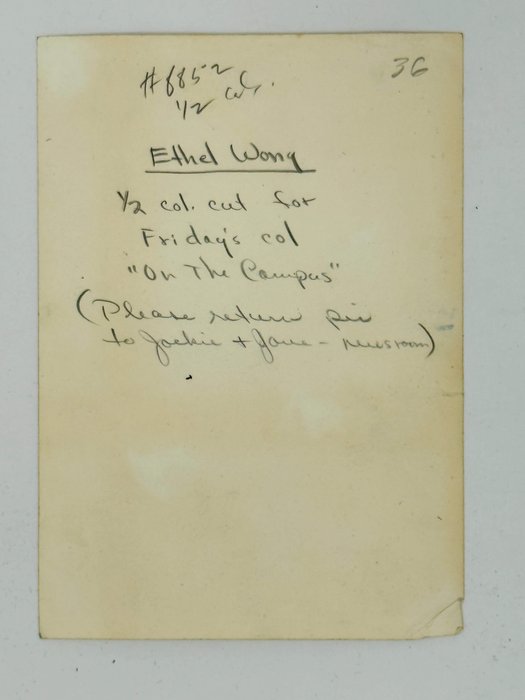 #6852
36
1/2 col.
Ethel Wong
1/2 col. cut for
Friday's col
"On The Campus"
(Please return pic
to Jackie + Jane - newsroom)